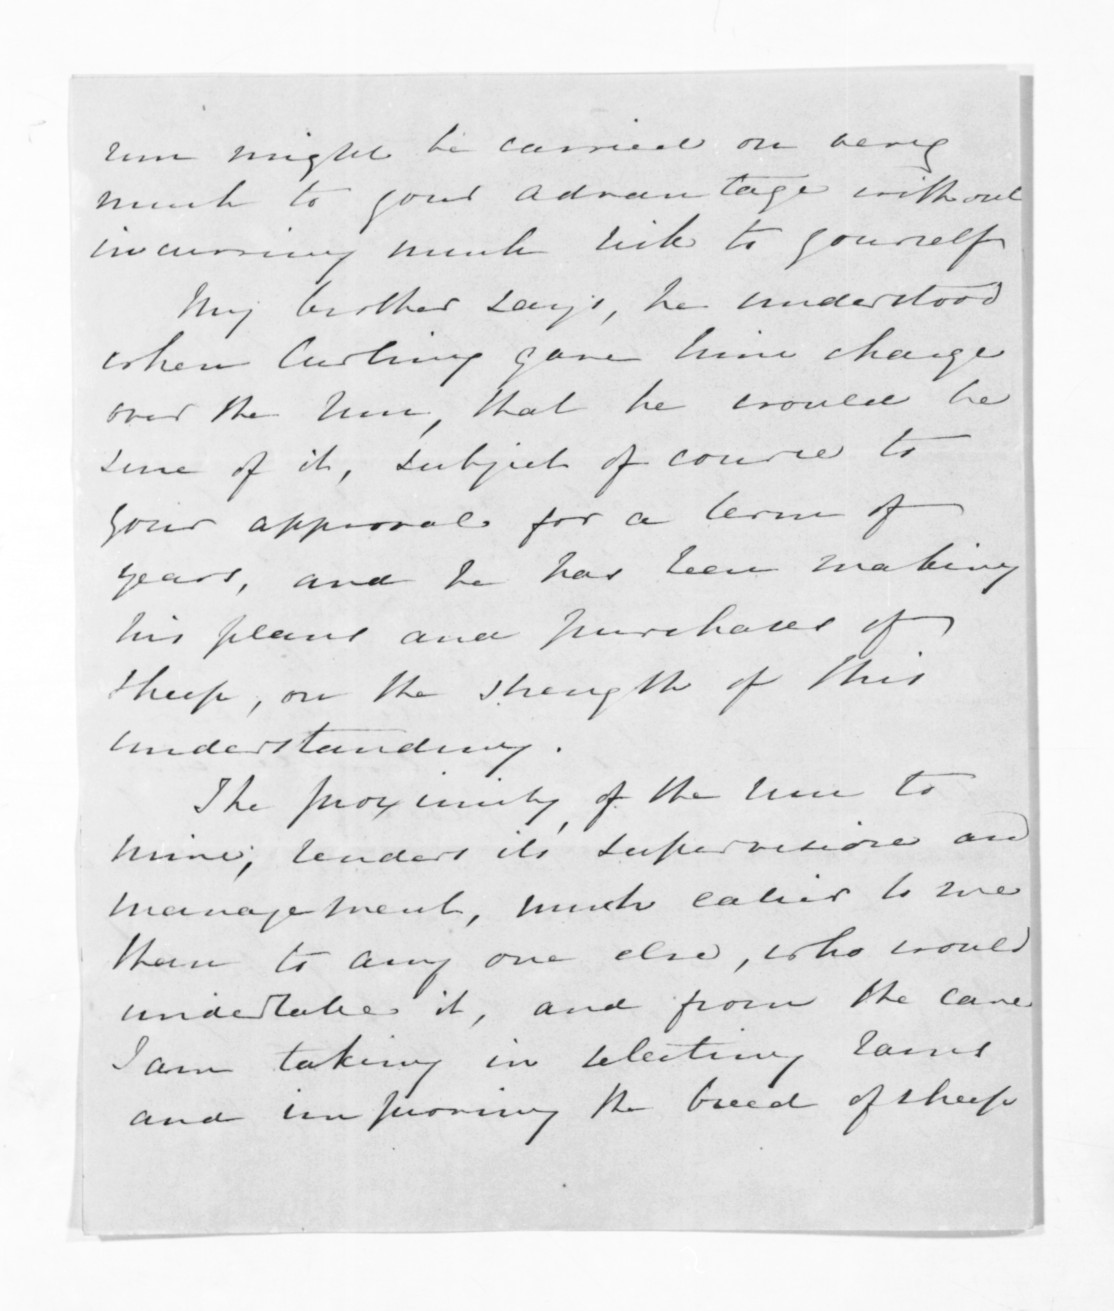 run might be carried on very
much to your advantage without
incurring much risk to yourself
My brother says, he understood
when Curling gave him charge
over the run, that he would be
sure of it, subject of course to
your approval for a term of
years, and he has been making
his plans and purchases of
sheep, on the strength of this
understanding.
The proximity, of the run to
mine, renders its supervision and
management, much easier to me
than to any one else, who would
undertake it, and from the care
I am taking in selecting rams
and improving the breed of sheep